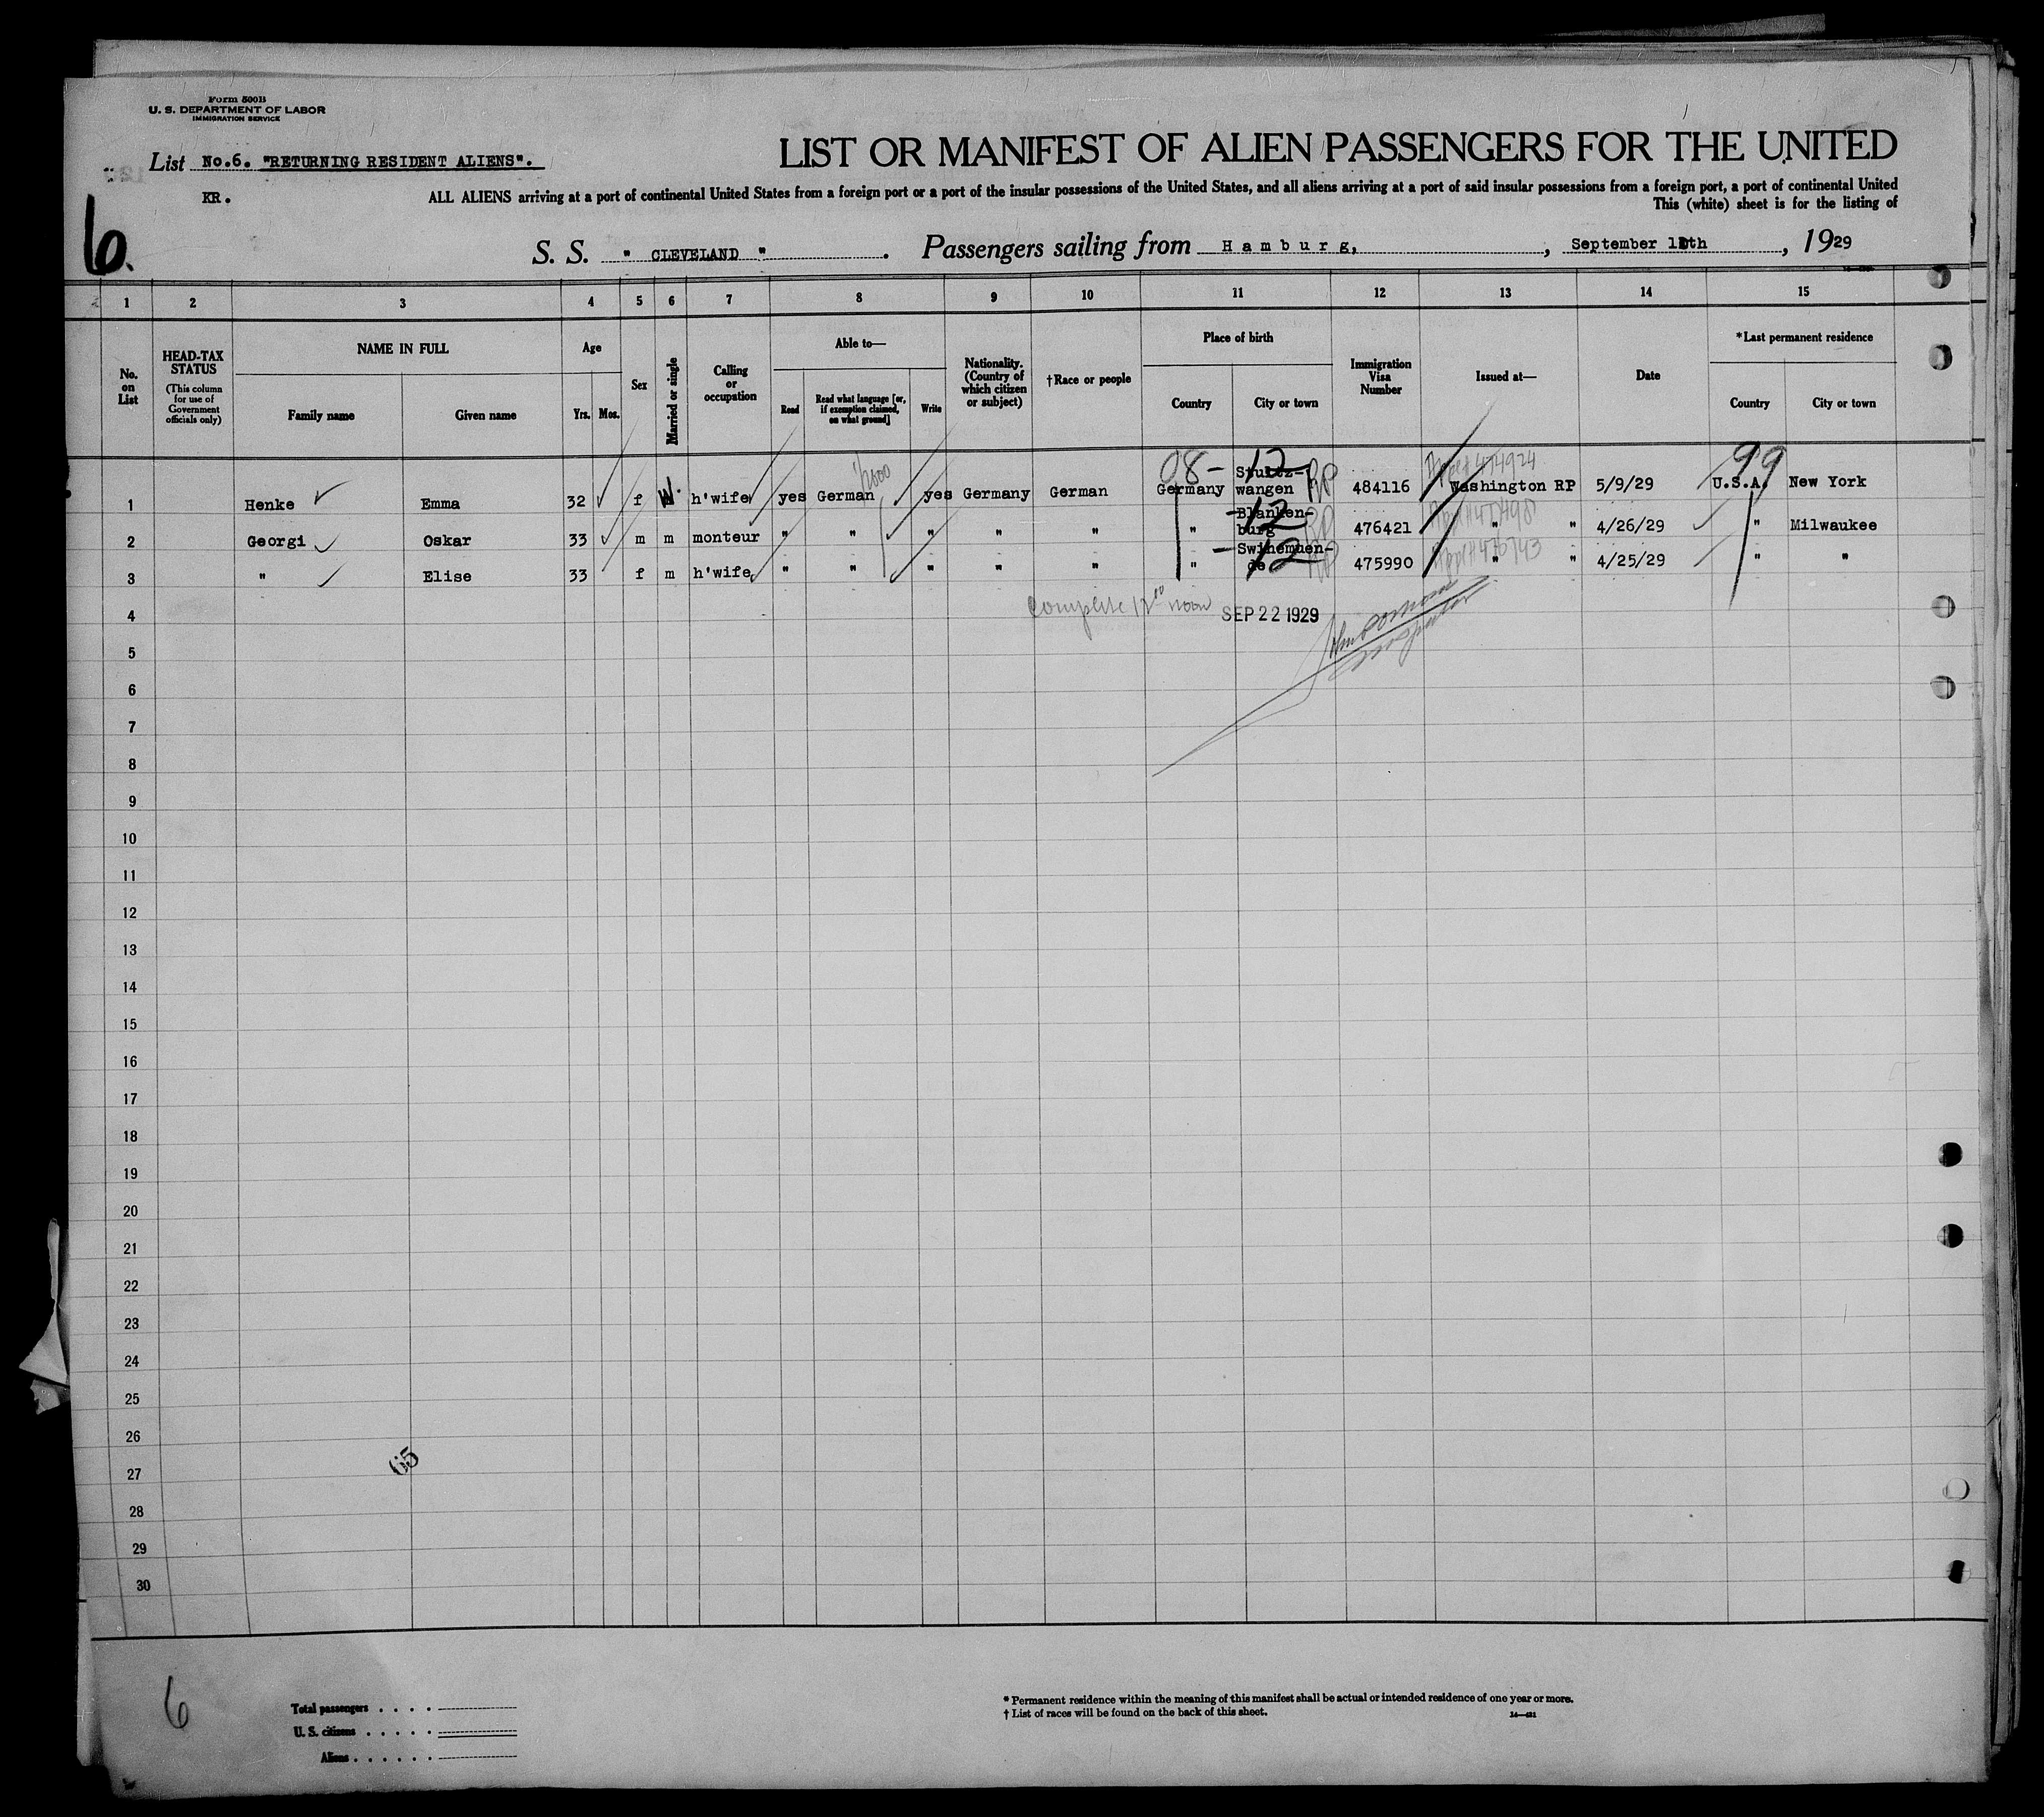 Form 500B
U. S. DEPARTMENT OF LABOR
IMMIGRATION SERVICE
List No.6. "RETURNING RESIDENT ALIENS".
LIST OR MANIFEST OF ALIEN PASSENGERS FOR THE UNITED
KR.
ALL ALIENS arriving at a port of continental United States from a foreign port or a port of the insular possessions of the United States, and all aliens arriving at a port of said insular possessions from a foreign port, a port of continental United
This (white) sheet is for the listing of
6.
S. S. " CLEVELAND " . Passengers sailing from Hamburg, , September th , 1929
1 2 3 4 5 6 7 8 9 10 11 12 13 14 15
No. on List
HEAD-TAX STATUS
(This column for use of Government officials only)
NAME IN FULL
Family name Given name
Age
Yrs. Mos.
Sex
Married or single
Calling or occupation
Able to—
Read Read what language [or, if exemption claimed, on what ground] Write
Nationality. (Country of which citizen or subject)
†Race or people
Place of birth
Country City or town
Immigration Visa Number
Issued at—
Date
*Last permanent residence
Country City or town
08- 12 RP 99
1 Henke Emma 32 f W. h'wife yes German yes Germany German Germany Stultz-wangen 484116 Washington RP 5/9/29 U.S.A. New York
2 Georgi Oskar 33 m m monteur " " " " " " Blanken-burg 12 RP 476421 " " 4/26/29 " Milwaukee
3 " Elise 33 f m h'wife " " " " " " Swinemuen-de 12 RP 475990 " " 4/25/29 " "
4 Complete 12 00 noon SEP 22 1929
5
6
7
8
9
10
11
12
13
14
15
16
17
18
19
20
21
22
23
24
25
26
65
27
28
29
30
6
Total passengers . . . .
U. S. citizens . . . . .
Aliens . . . . . .
* Permanent residence within the meaning of this manifest shall be actual or intended residence of one year or more.
† List of races will be found on the back of this sheet.